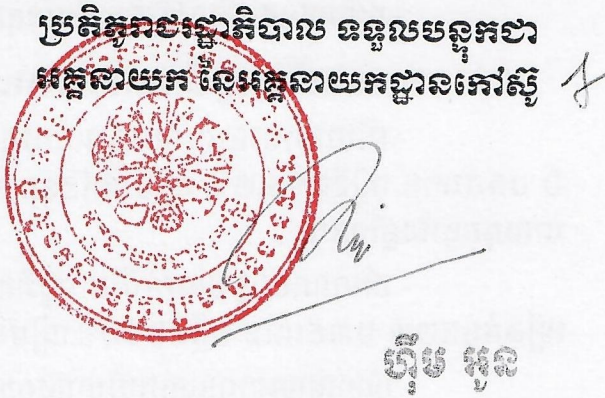 ប្រតិភូរាជរដ្ឋាភិបាល ទទួលបន្ទុកជា
អគ្គនាយក នៃអគ្គនាយកដ្ឋានកៅស៊ូ
ហ៊ឹម អូន